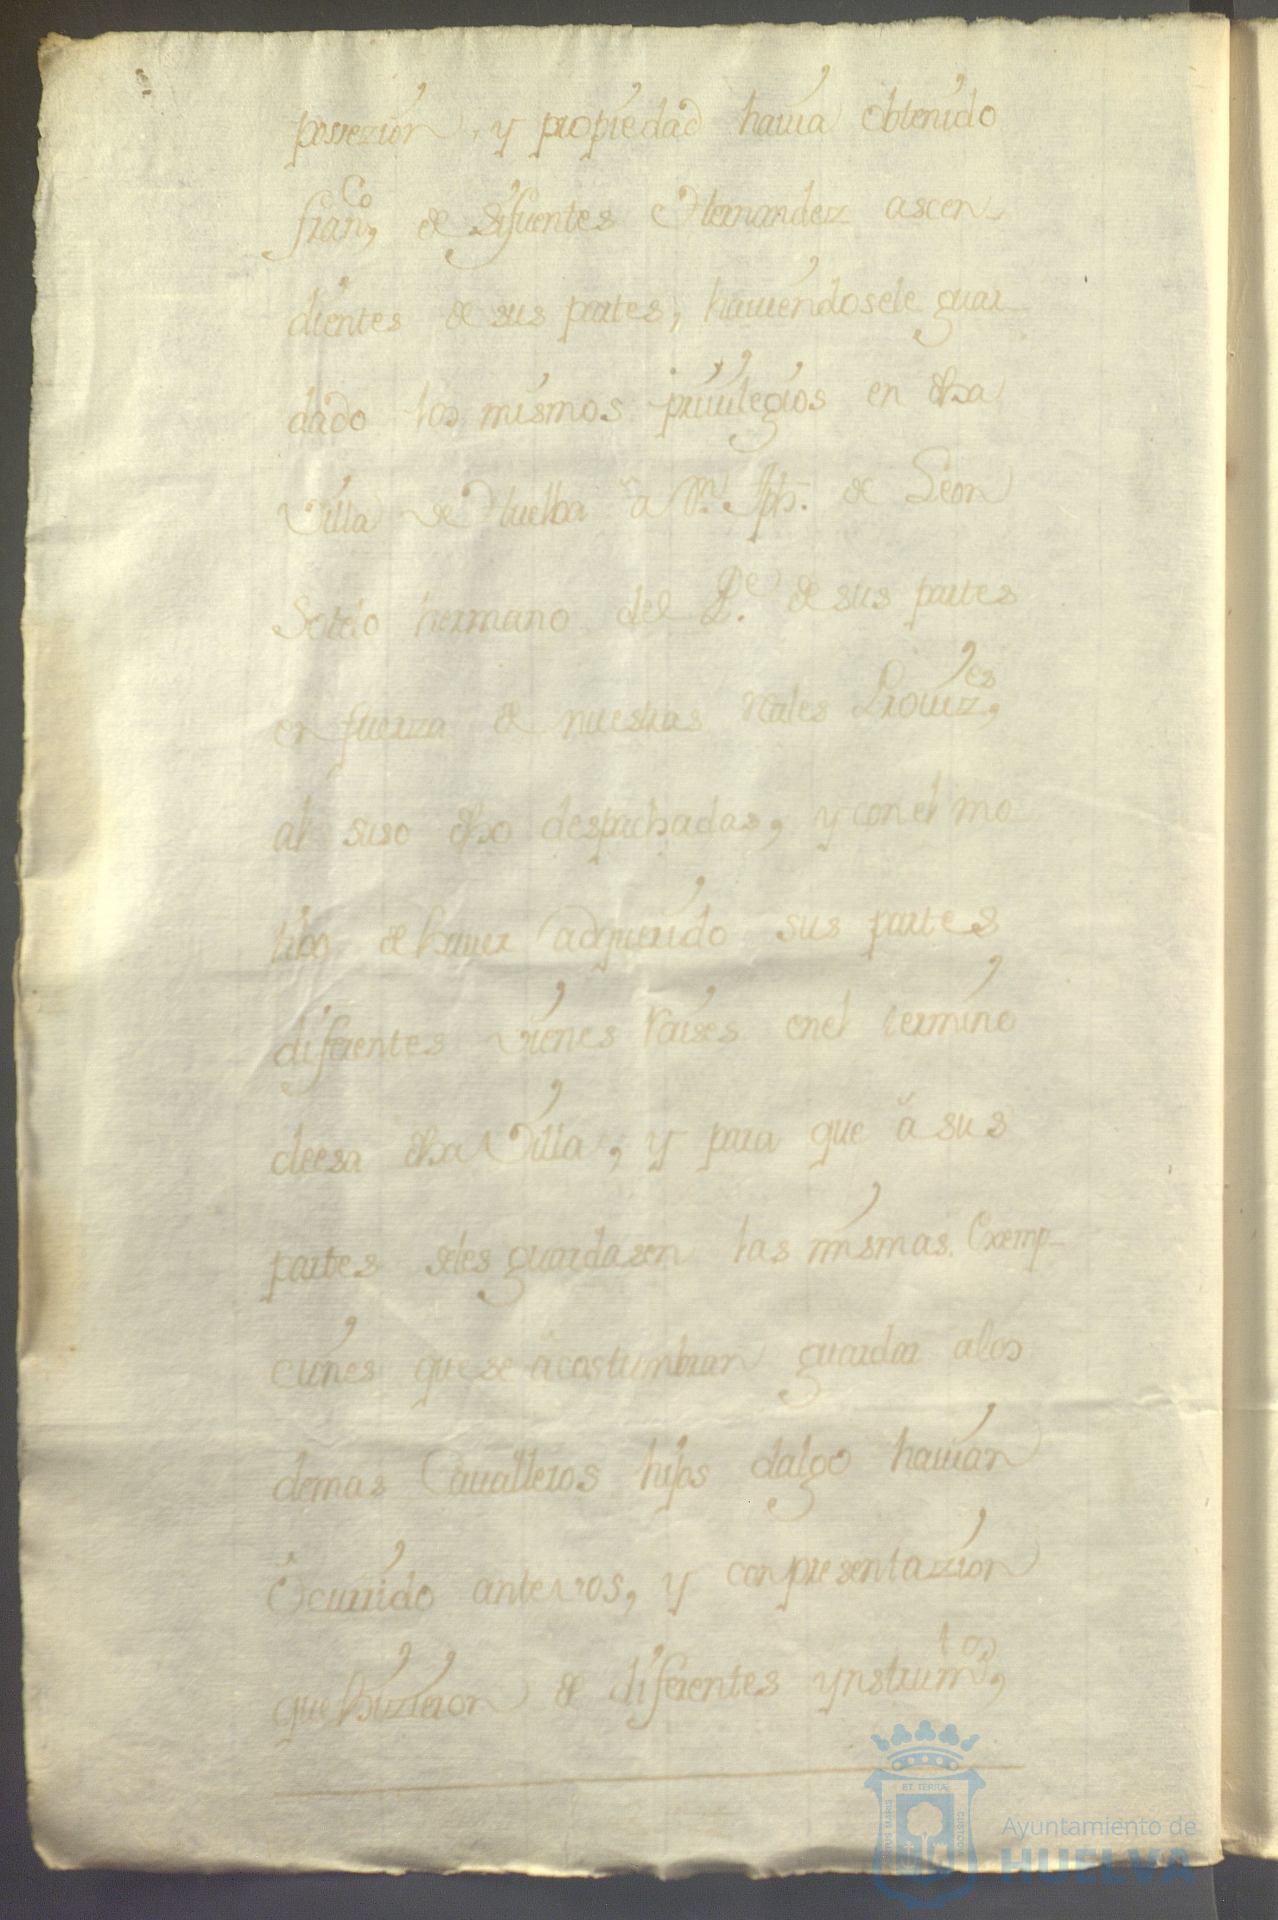 possezion, y propiedad hauia obtenido
fran,co de Sifuentes Hernandez ascen-
dientes de sus partes, hauiendosele guar-
dado los mismos priuilegios en dha
Villa de Huelba a Dn. Jph. de Leon
Sotelo hermano del Pe. de sus partes
en fuerza de nuestras rales Prouiz,es
al suso dho despachadas, y con el mo-
tibo de hauer adquirido sus partes
diferentes vienes raises enel termino
deesa dha Villa, y para que a sus
partes seles guardasen las mismas Exemp-
ciones que se acostumbran guardar alos
demas Caualleros hijos dalgo hauian
Ocurrido antevos, y conpresentazion
que hizieron de diferentes ynstrum,tos
ET TERRÆ
CUSTODIA
Ayuntamiento de
HUELVA